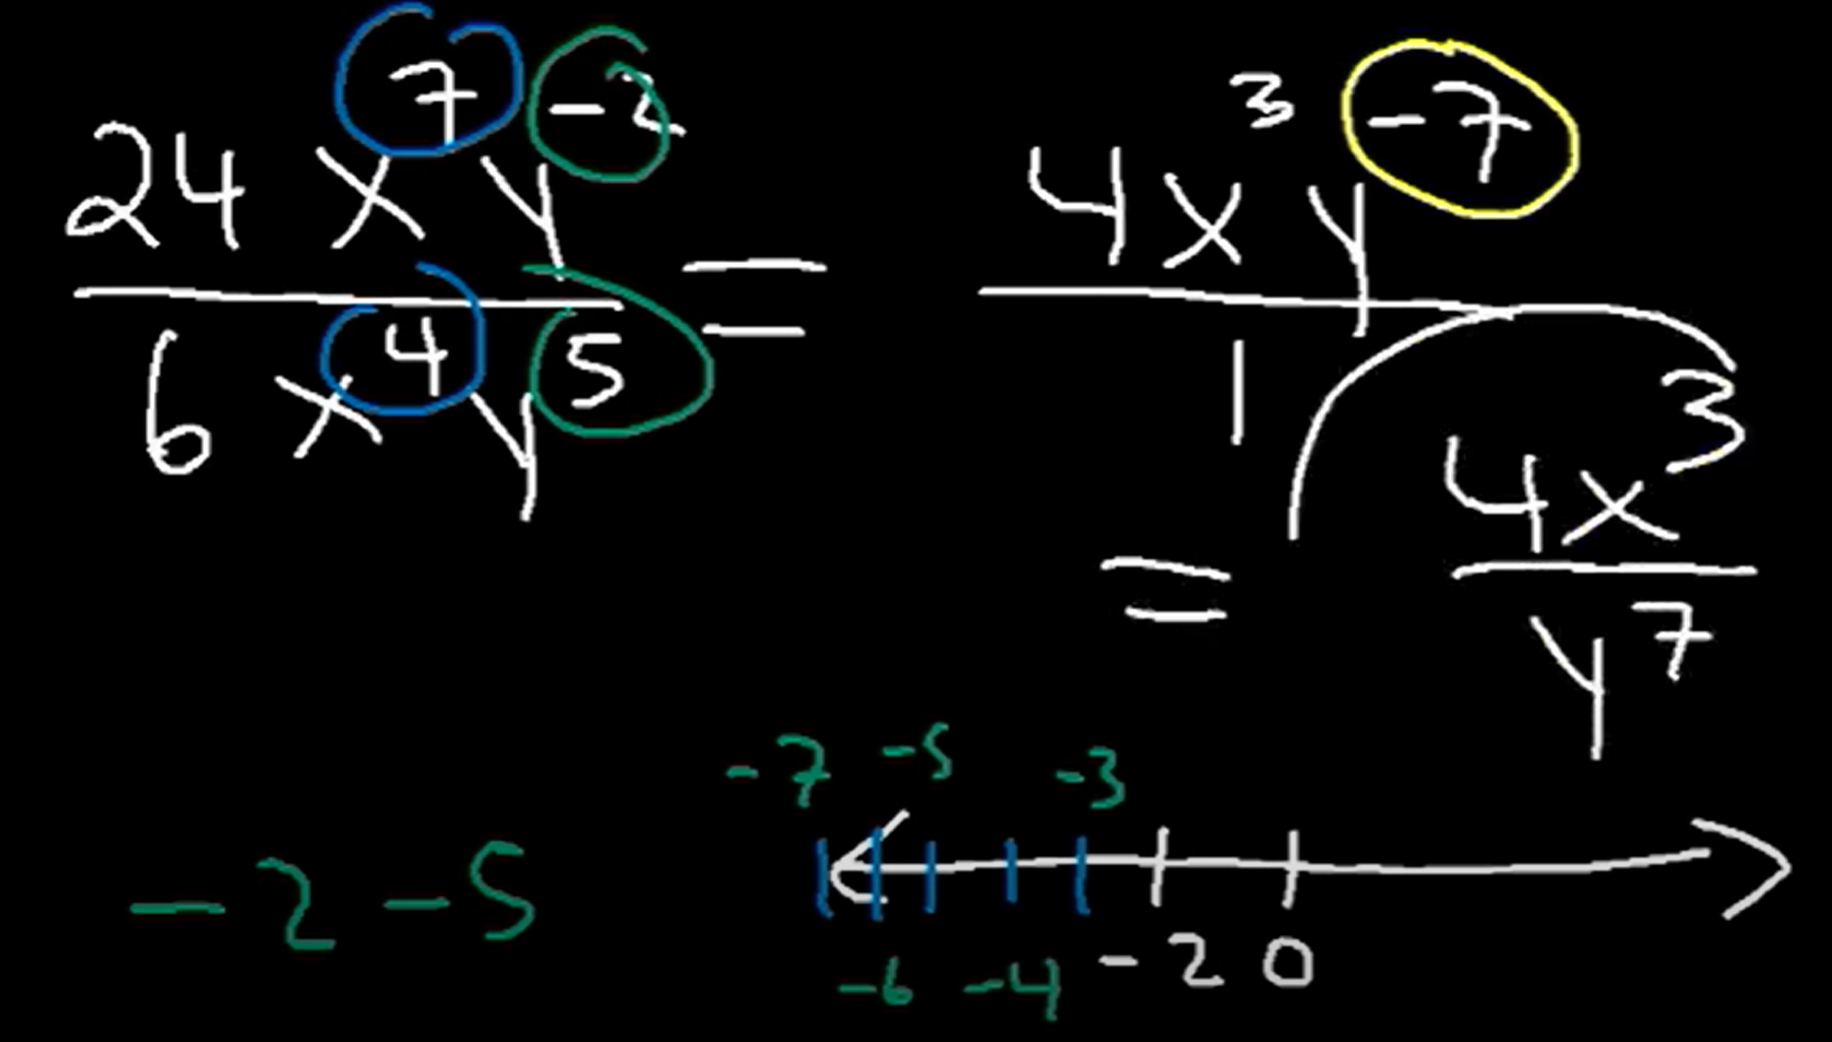 24 x⁷ y⁻² / 6 x⁴ y⁵ = 4 x³ y⁻⁷ / 1
= 4x³ / y⁷
-7 -5 -3
-2 -5
-6 -4 -2 0